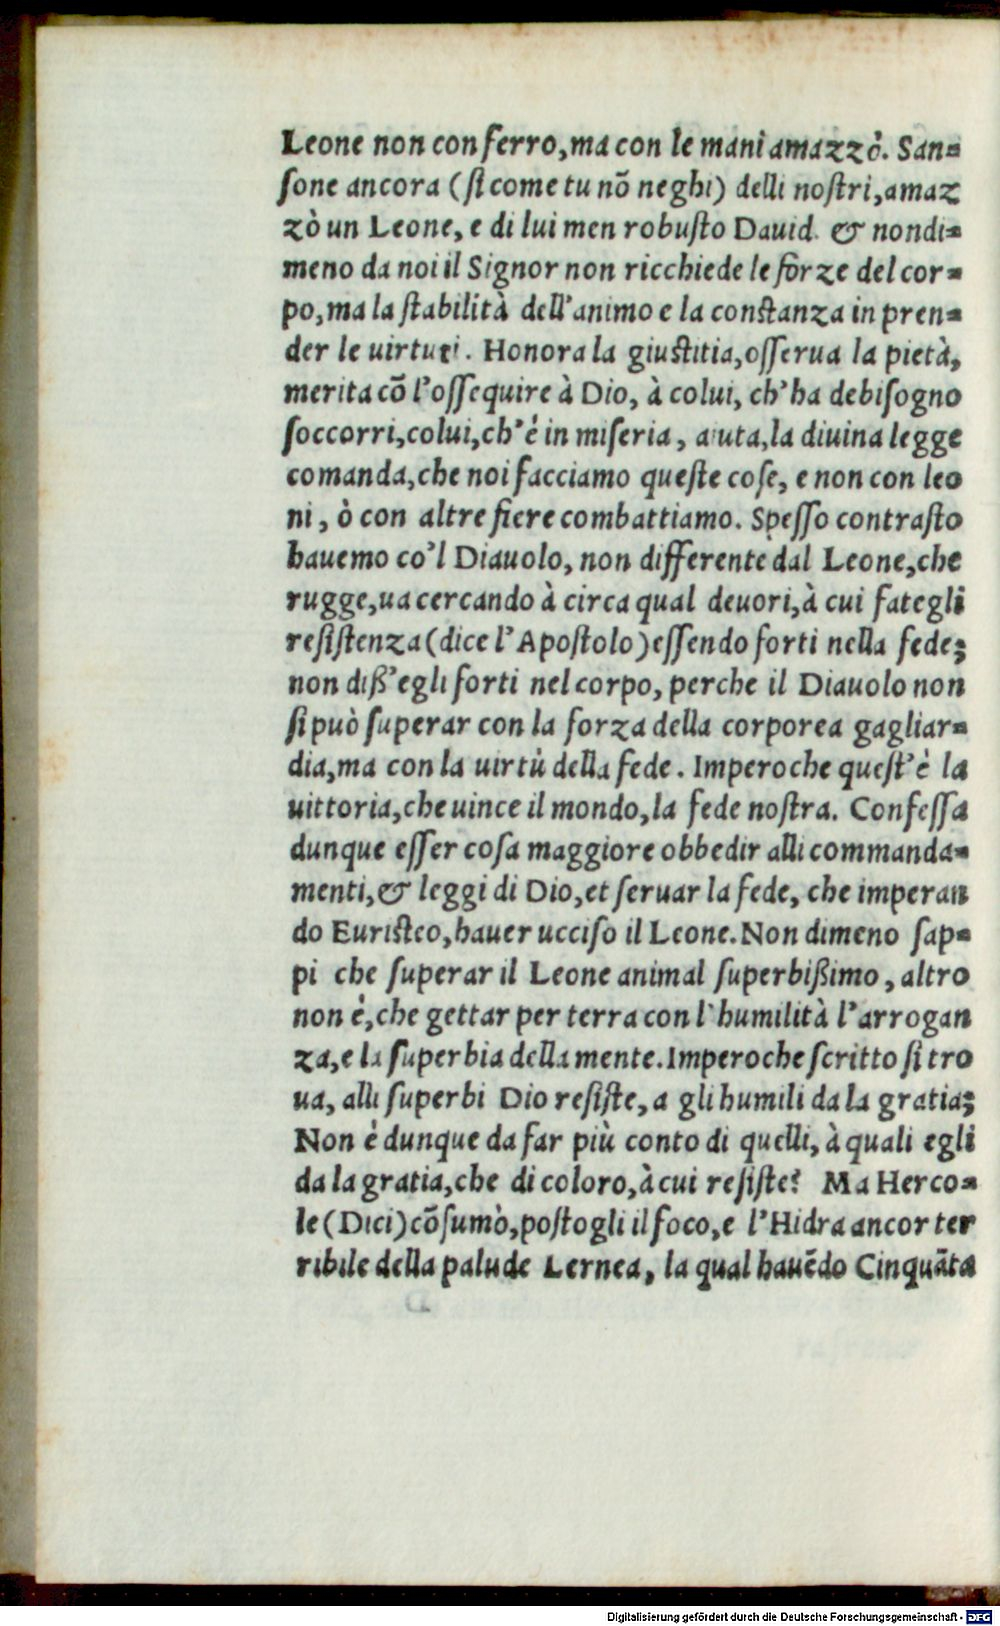 Leone non con ferro, ma con le mani amazzò. San-
sone ancora (si come tu nõ neghi) delli nostri, amaz
zò un Leone, e di lui men robusto Dauid. & nondi-
meno da noi il Signor non ricchiede le forze del cor-
po, ma la stabilità dell'animo e la constanza in pren-
der le uirtuti. Honora la giustitia, osserua la pietà,
merita cõ l'ossequire à Dio, à colui, ch'ha debisogno
soccorri, colui, ch'è in miseria, aiuta, la diuina legge
comanda, che noi facciamo queste cose, e non con leo
ni, ò con altre fiere combattiamo. Spesso contrasto
hauemo co'l Diauolo, non differente dal Leone, che
rugge, ua cercando à circa qual deuori, à cui fategli
resistenza (dice l'Apostolo) essendo forti nella fede;
non diß'egli forti nel corpo, perche il Diauolo non
si può superar con la forza della corporea gagliar-
dia, ma con la uirtù della fede. Imperoche quest'è la
uittoria, che uince il mondo, la fede nostra. Confessa
dunque esser cosa maggiore obbedir alli commanda-
menti, & leggi di Dio, et seruar la fede, che imperan
do Euristeo, hauer ucciso il Leone. Non dimeno sap-
pi che superar il Leone animal superbißimo, altro
non è, che gettar per terra con l'humilità l'arrogan
za, e la superbia della mente. Imperoche scritto si tro
ua, alli superbi Dio resiste, a gli humili da la gratia;
Non è dunque da far più conto di quelli, à quali egli
da la gratia, che di coloro, à cui resiste? Ma Herco-
le (Dici) cõsumò, postogli il foco, e l'Hidra ancor ter
ribile della palude Lernea, la qual hauẽdo Cinquãta
Digitalisierung gefördert durch die Deutsche Forschungsgemeinschaft - DFG